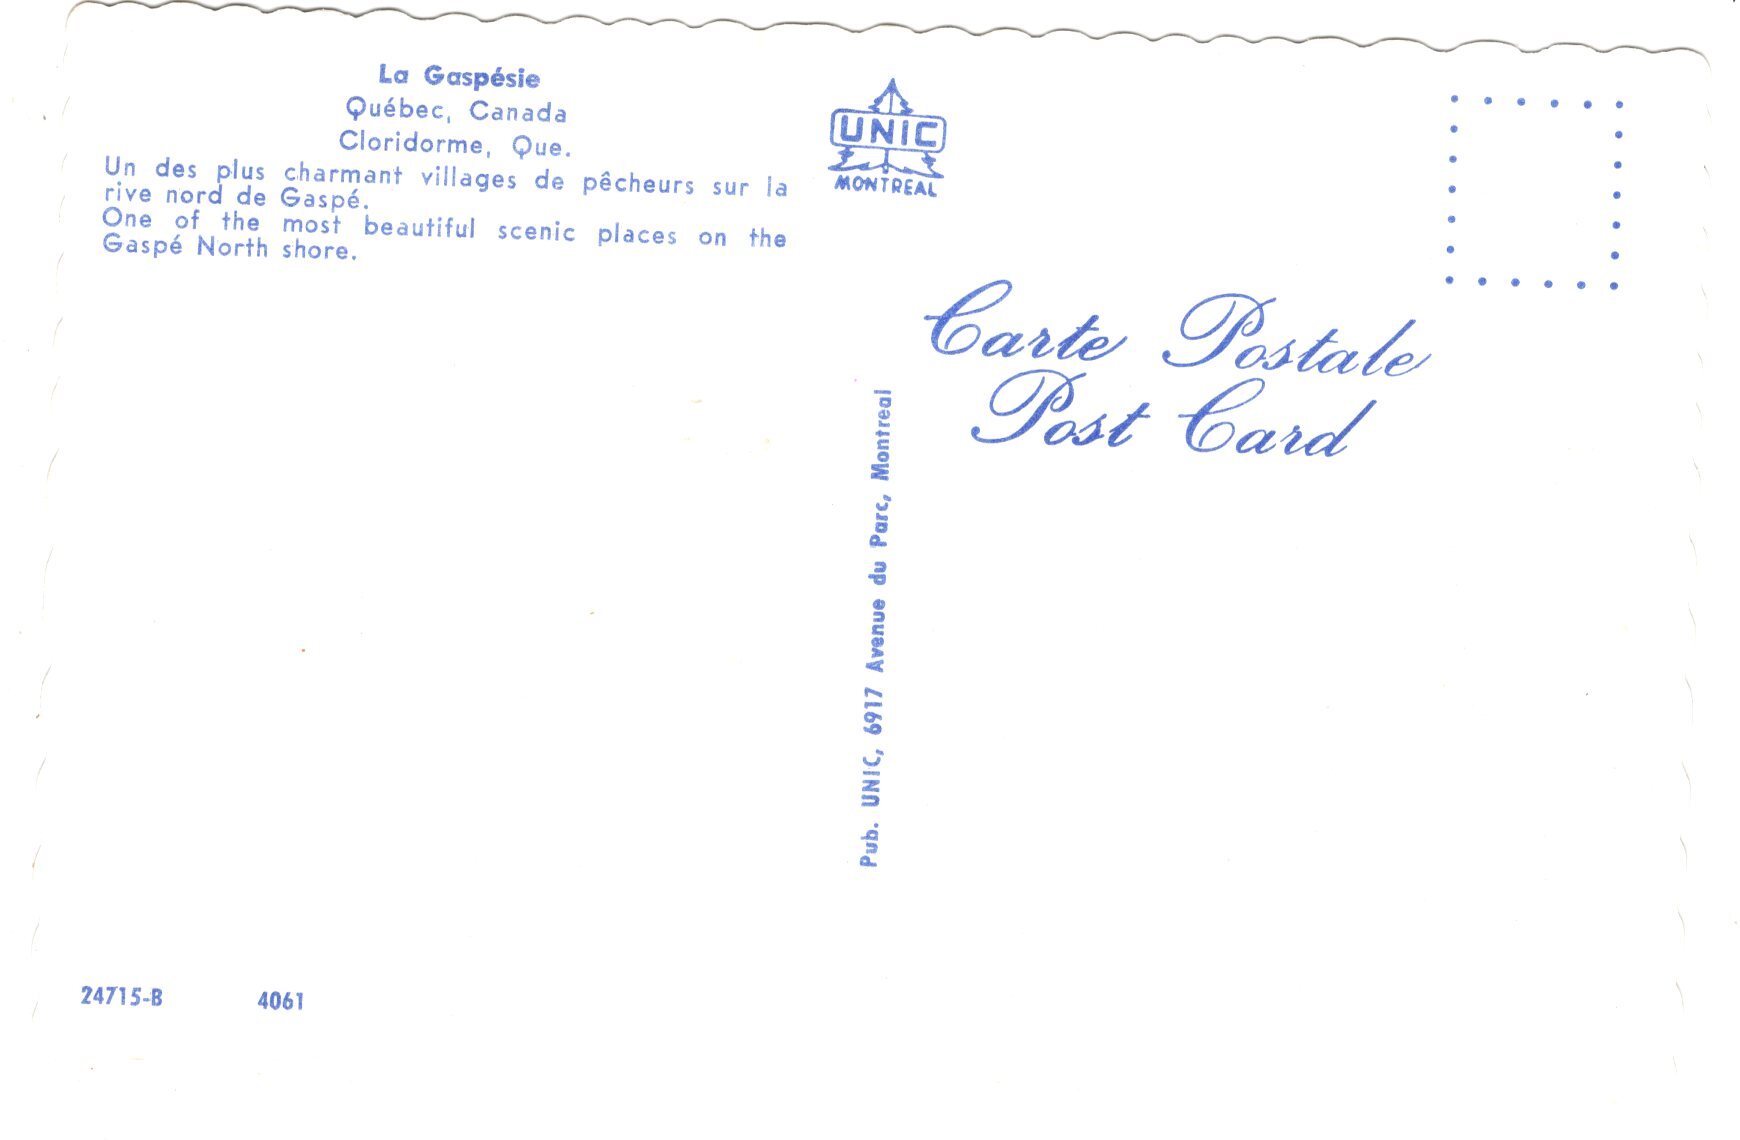 La Gaspésie
Québec, Canada
Cloridorme, Que.
Un des plus charmant villages de pêcheurs sur la
rive nord de Gaspé.
One of the most beautiful scenic places on the
Gaspé North shore.
UNIC
MONTREAL
Carte Postale
Post Card
Pub. UNIC, 6917 Avenue du Parc, Montreal
24715-B 4061